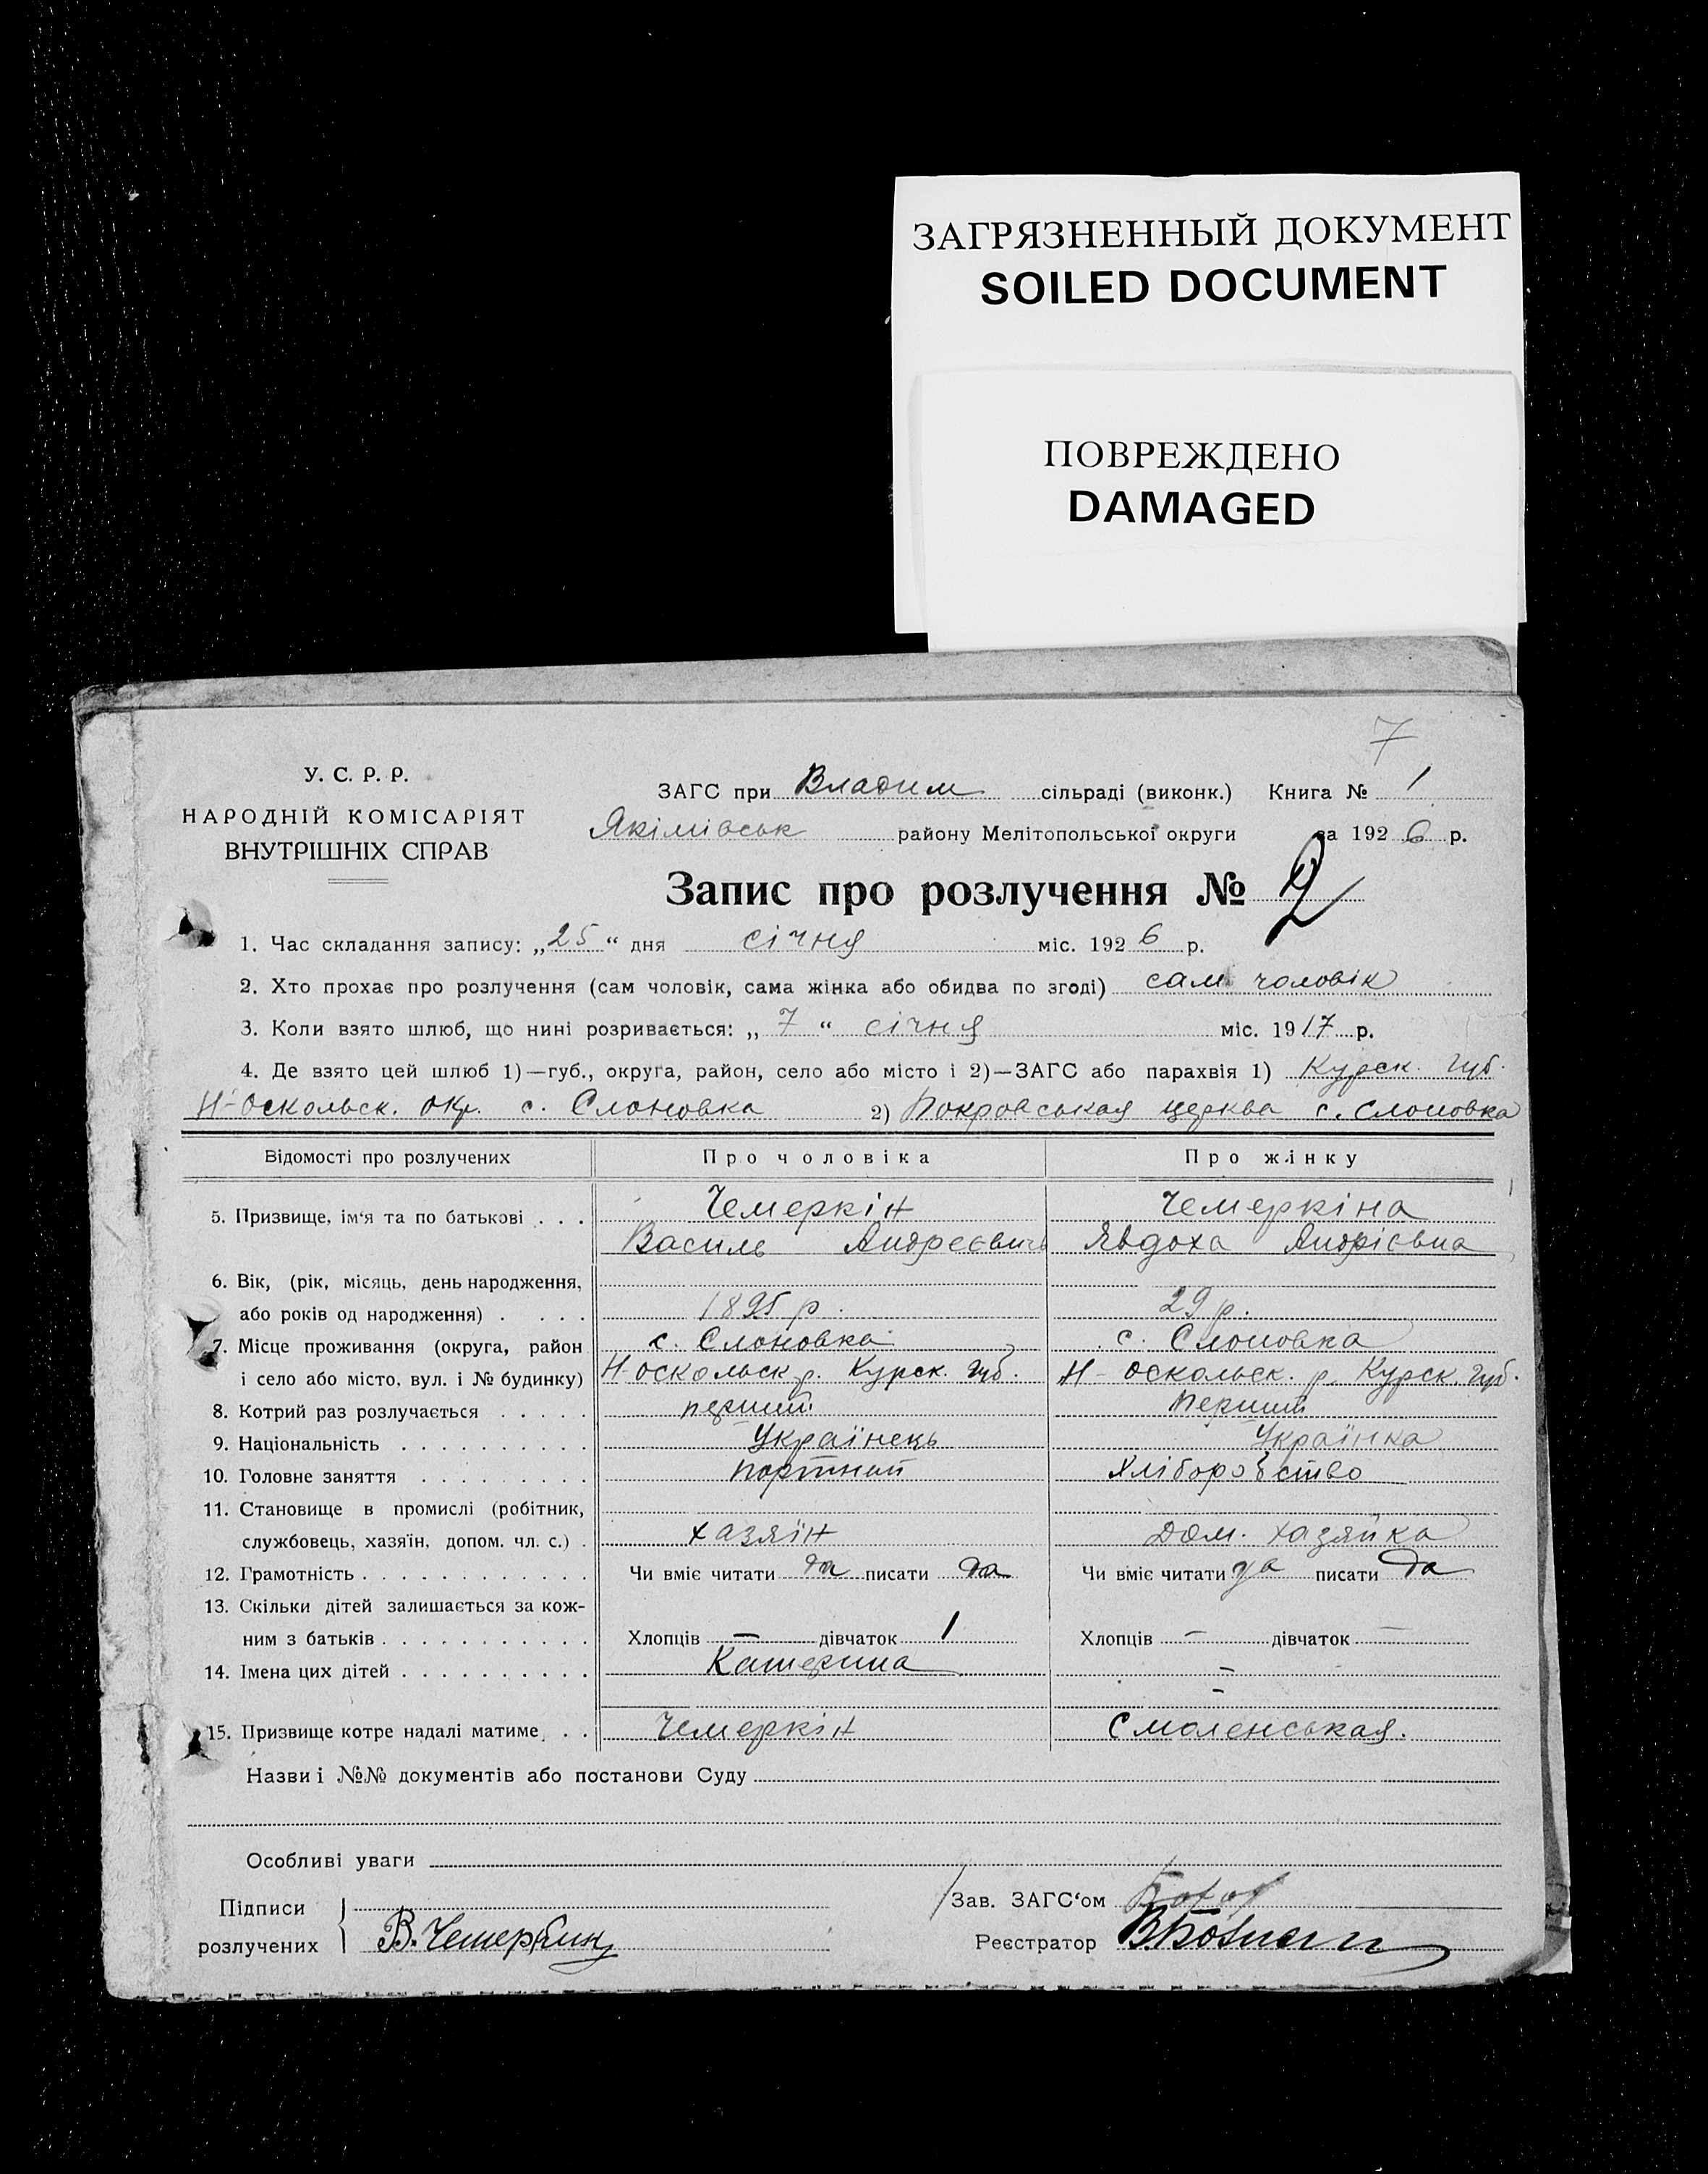 ЗАГРЯЗНЕННЫЙ ДОКУМЕНТ
SOILED DOCUMENT
ПОВРЕЖДЕНО
DAMAGED
7
У. С. Р. Р.
НАРОДНІЙ КОМІСАРІЯТ
ВНУТРІШНІХ СПРАВ
ЗАГС при Владим сільраді (виконк.) Книга № 1
Якімівськ району Мелітопольської округи за 1926 р.
Запис про розлучення № 2
1. Час складання запису: „25“ дня січня міс. 1926 р.
2. Хто прохає про розлучення (сам чоловік, сама жінка або обидва по згоді) сам чоловік
3. Коли взято шлюб, що нині розривається: „7“ січня міс. 1917 р.
4. Де взято цей шлюб 1)—губ., округа, район, село або місто і 2)—ЗАГС або парахвія 1) Курск. губ.
Н-Оскольск. окр. с. Слоновка 2) Покровськая церква с. Слоновка
Відомості про розлучених Про чоловіка Про жінку
5. Призвище, ім‘я та по батькові . . . Чемеркін Чемеркіна
Василь Андреєвич Явдоха Андрієвна
6. Вік, (рік, місяць, день народження,
або років од народження) . . . . 1895 р. 29 р.
7. Місце проживання (округа, район с. Слоновка с. Слоновка
і село або місто, вул. і № будинку) Н-Оскольск р. Курск. губ. Н-Оскольск. р. Курск. губ.
8. Котрий раз розлучається . . . . . перший Перший
9. Національність . . . . . . . . . . Українець Українка
10. Головне заняття . . . . . . . . портний Хліборобство
11. Становище в промислі (робітник,
службовець, хазяїн, допом. чл. с.) . хазяїн Дом. хазяйка
12. Грамотність . . . . . . . . . . . . Чи вміє читати да писати да Чи вміє читати да писати да
13. Скільки дітей залишається за кож-
ним з батьків . . . . . . . . . . . Хлопців — дівчаток 1 Хлопців — дівчаток —
14. Імена цих дітей . . . . . . . . . . Катерина –
–
15. Призвище котре надалі матиме . . Чемеркін Смоленськая.
Назви і №№ документів або постанови Суду
Особливі уваги
Підписи Зав. ЗАГС‘ом
розлучених В. Чемеркин Реєстратор